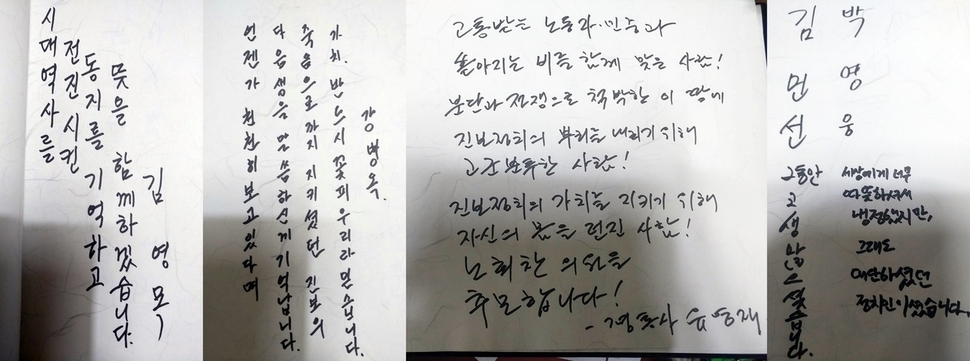 시대역사를
전진시킨
동지를 기억하고
뜻을 함께하겠습니다.
김영목
언젠가 천천히 보고 있다며
다음 생을 말씀하신 게 기억납니다.
죽음으로까지 지키셨던 진보의
가치. 반드시 꽃피우리라 믿습니다.
강병옥.
고통받는 노동자·민중과
쏟아지는 비를 함께 맞은 사람!
분단과 전쟁으로 척박한 이 땅에
진보정치의 뿌리를 내리기 위해
고군분투한 사람!
진보정치의 가치를 지키기 위해
자신의 몸을 던진 사람!
노회찬 의원을
추모합니다!
김민선
그동안 고생 많으셨습니다.
박영웅
세상에게 너무
따뜻하셔서
냉정했지만,
그래도
대단하셨던
정치인이셨습니다.